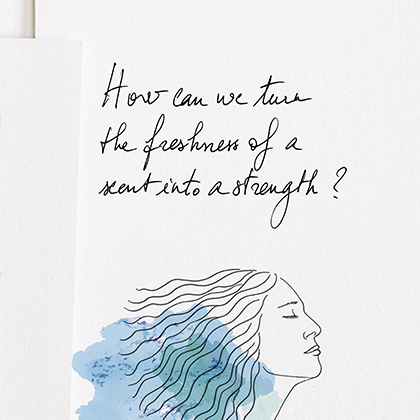 How can we turn
the freshness of a
scent into a strength ?